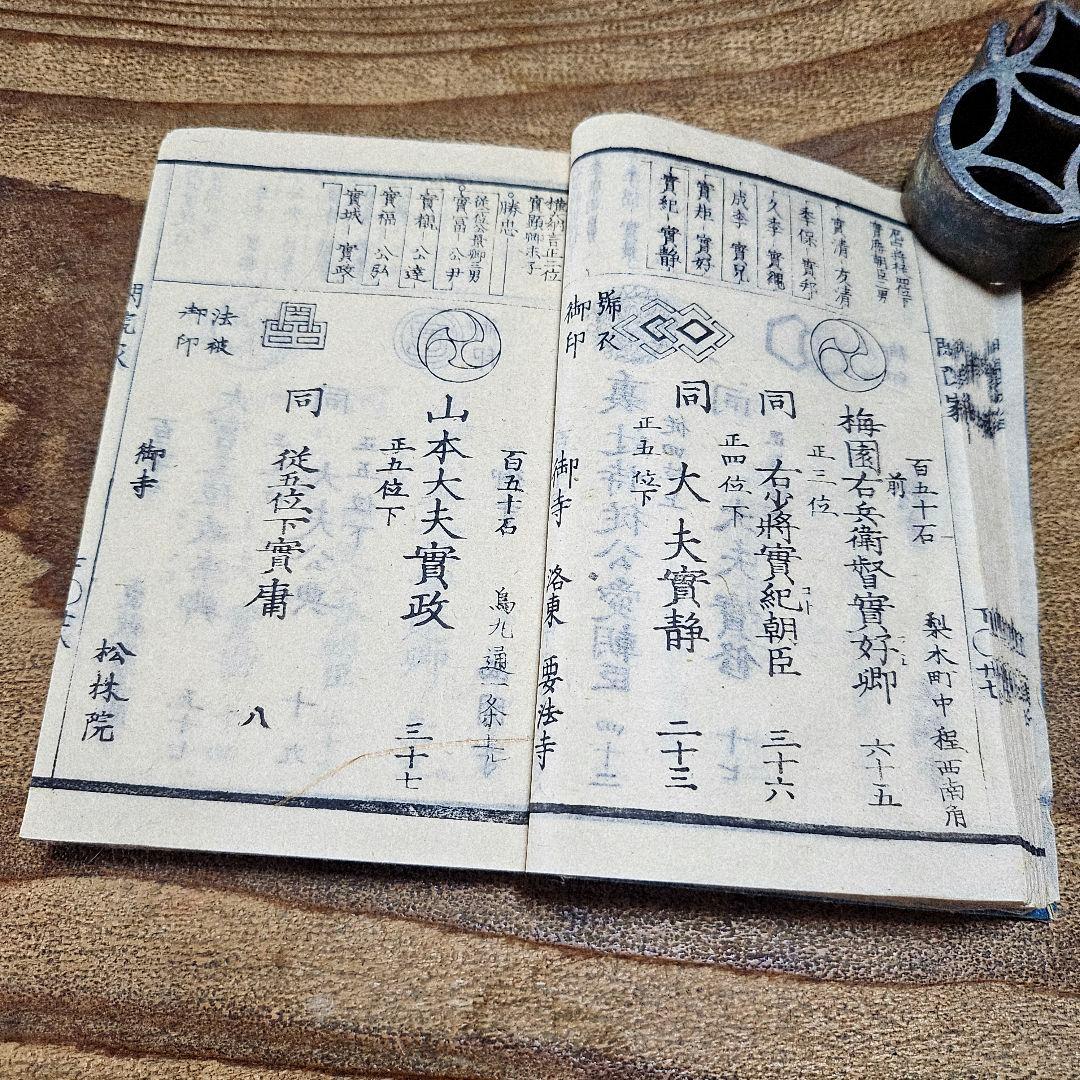 實清 友清
季保 實邦
久季 實縄
成季 實兄
實矩 實好
實紀 實静
百五十石
梨木町中程西南角
前
梅園右兵衛督實好卿
六十五
正三位
同
右少將實紀朝臣
コト
三十六
正四位下
同
大夫實静
二十三
正五位下
號衣
御印
御寺
洛東
要法寺
横
納言正三位
實顕卿末子
勝忠
實冨 公尹
實福 公弘
實城 實政
百五十石
烏丸通一条上ル
山本大夫實政
三十七
正五位下
同
從五位下實庸
八
法被
御印
御寺
松林院